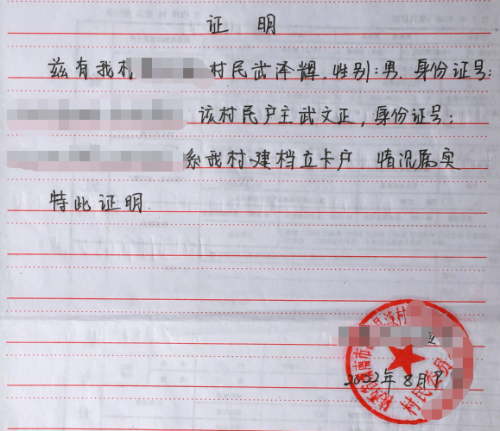 证 明
兹有我村 村民武泽辉,性别:男,身份证号:
该村民户主武文正,身份证号:
系我村建档立卡户,情况属实
特此证明
村民委员
2022年8月